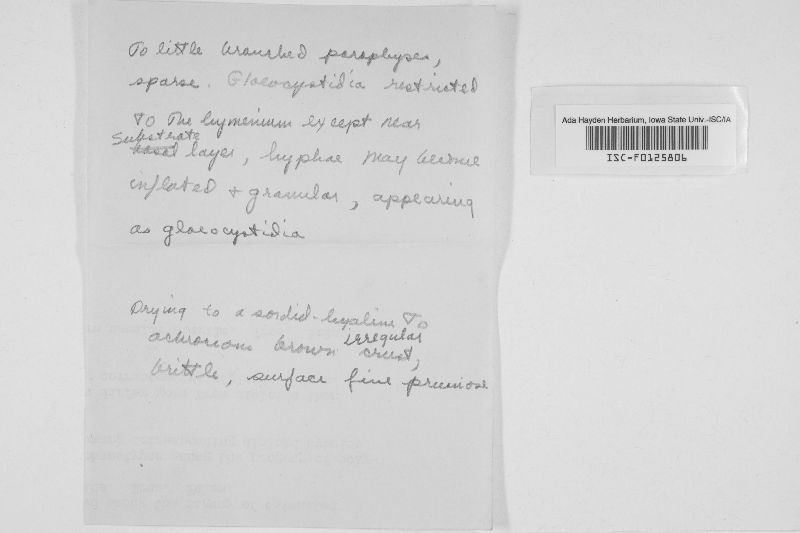 To little branched paraphyses,
sparse. Gloeocystidia restricted
to the hymenium except near
substrate
basal layer, hyphae may become
inflated + granular, appearing
as gloeocystidia
Drying to a sordid-hyaline to
irregular
brown crust,
brittle, surface fine pruinose
Ada Hayden Herbarium, Iowa State Univ.-ISC/IA
ISC-F0125806